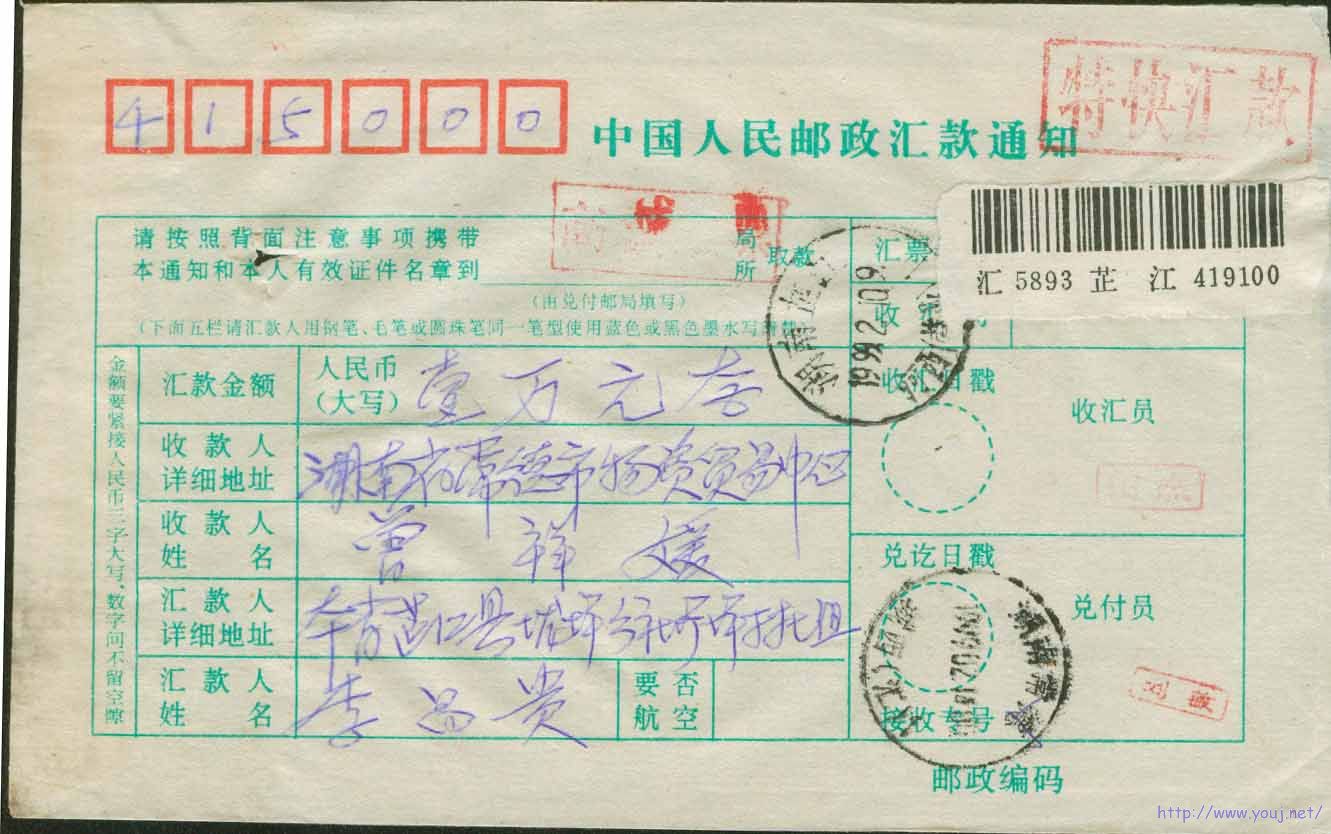 特快汇款
415000
中国人民邮政汇款通知
请按照背面注意事项携带
本通知和本人有效证件名章到
局
所
取款
(由兑付邮局填写)
(下面五栏请汇款人用钢笔、毛笔或圆珠笔同一笔型使用蓝色或黑色墨水写
汇票
汇 5893 芷 江 419100
收
湖南芷
1999.2.10.9
金额要紧接人民币三字大写、数字间不留空隙
汇款金额
人民币
(大写)
壹万元整
收汇日戳
收汇员
收款人
详细地址
湖南省常德市物资贸易中心
收款人
姓名
曾祥媛
兑讫日戳
兑付员
汇款人
详细地址
本省芷江县
汇款人
姓名
李昌贵
要否
航空
接收专号
湖南常
邮政编码
http://www.youj.net/